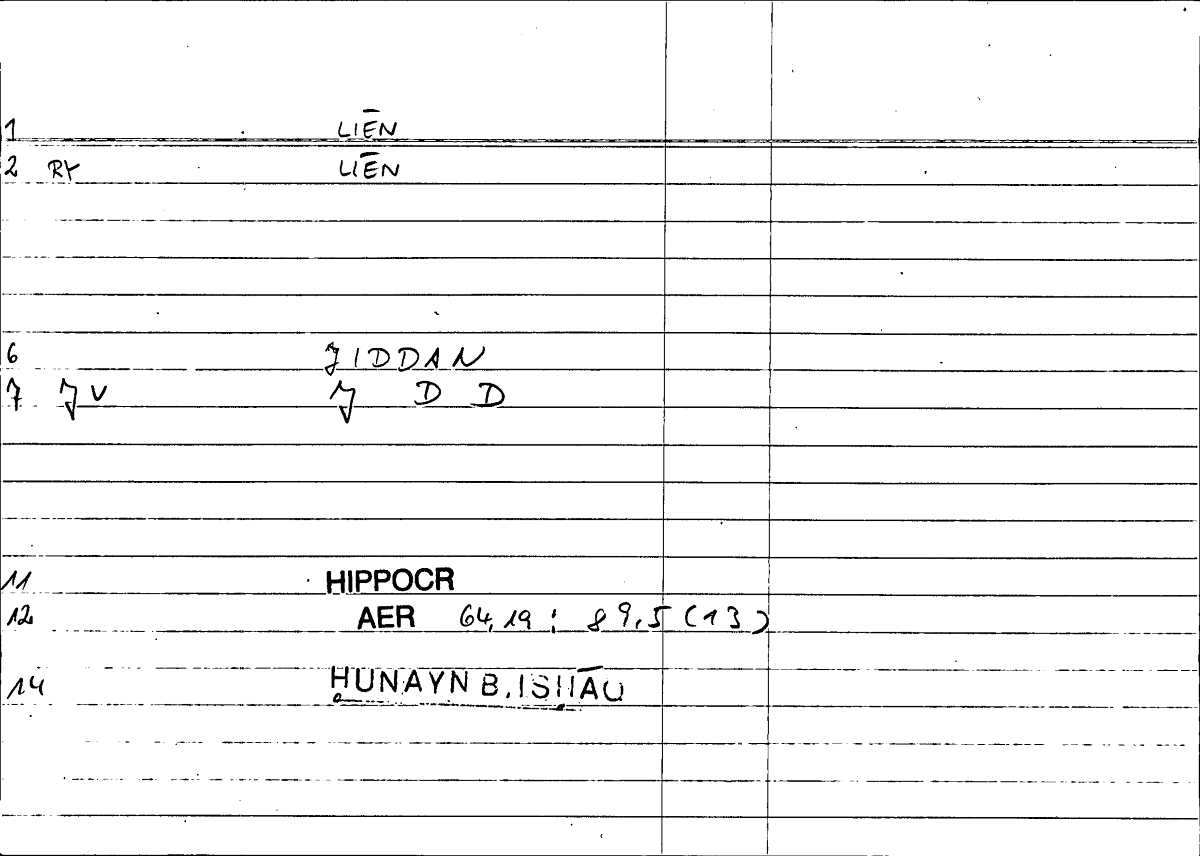 1 LIĒN
2 RY LIĒN
6 ǮIDDAN
7 ǮV Ǯ D D
11 HIPPOCR
12 AER 64,19 : 89,5 (13)
14 ḤUNAYN B. ISḤĀQ